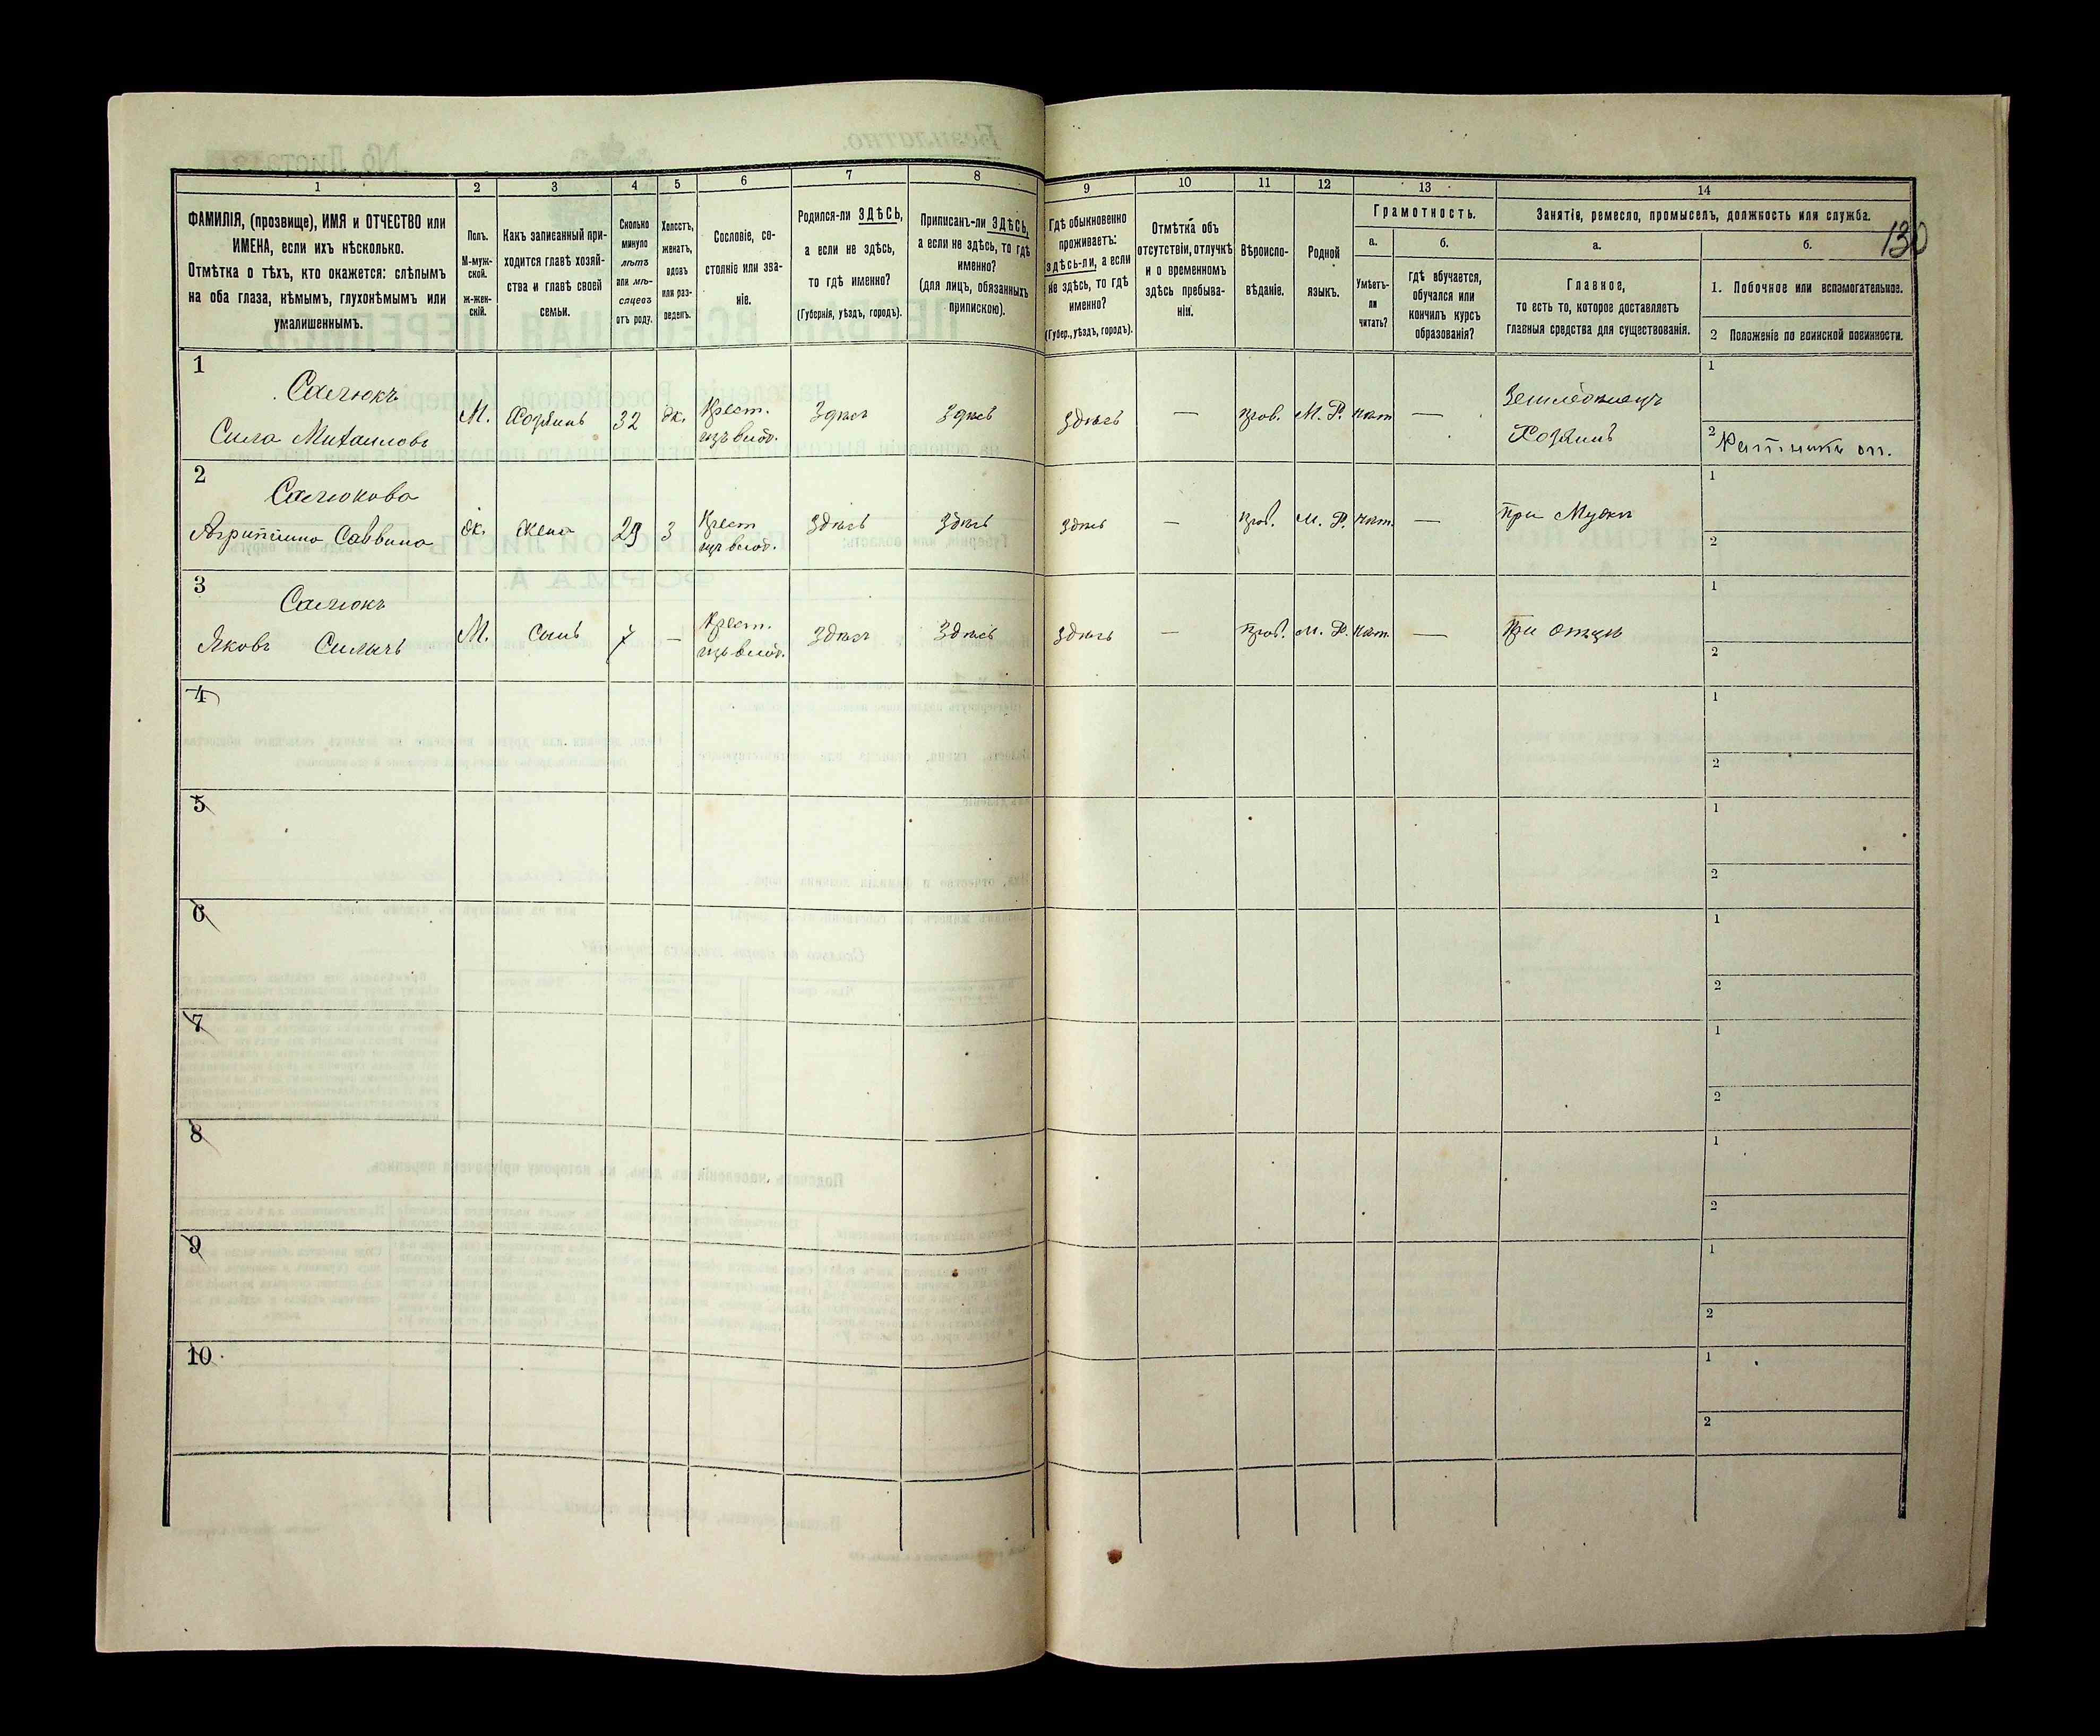 1
2
3
4
5
6
7
8
9
10
11
12
13
14
ФАМИЛІЯ, (прозвище), ИМЯ и ОТЧЕСТВО или
ИМЕНА, если ихъ нѣсколько.
Отмѣтка о тѣхъ, кто окажется: слѣпымъ
на оба глаза, нѣмымъ, глухонѣмымъ или
умалишеннымъ.
Полъ.
М-муж-
ской.
ж-жен-
скій.
Какъ записанный при-
ходится главѣ хозяй-
ства и главѣ своей
семьи.
Сколько
минуло
лѣтъ
или мѣ-
сяцевъ
отъ роду.
Холостъ,
женатъ,
вдовъ
или раз-
веденъ.
Сословіе, со-
стояніе или зва-
ніе.
Родился-ли ЗДѢСЬ,
а если не здѣсь,
то гдѣ именно?
(Губернія, уѣздъ, городъ).
Приписанъ-ли ЗДѢСЬ,
а если не здѣсь, то гдѣ
именно?
(для лицъ, обязанныхъ
припискою).
Гдѣ обыкновенно
проживаетъ:
здѣсь-ли, а если
не здѣсь, то гдѣ
именно?
(Губер., уѣздъ, городъ).
Отмѣтка объ
отсутствіи, отлучкѣ
и о временномъ
здѣсь пребыва-
ніи.
Вѣроиспо-
вѣданіе.
Родной
языкъ.
Грамотность.
а.
Умѣетъ-
ли
читать?
б.
гдѣ обучается,
обучался или
кончилъ курсъ
образованія?
Занятіе, ремесло, промыселъ, должность или служба.
130
а.
Главное,
то есть то, которое доставляетъ
главныя средства для существованія.
б.
1. Побочное или вспомогательное.
2 Положеніе по воинской повинности.
1
Сачюкъ
Сила Михаиловъ
М.
Хозяинъ
32
ж.
Крест.
изъ влад.
Здѣсь
Здѣсь
Здѣсь
—
прав.
М. Р.
нѣт
—
Земледѣлецъ
Хозяинъ
1
2
Ратникъ оп.
2
Сачюкова
Агриппина Саввина
ж.
Жена
29
З
Крест
изъ влад.
Здѣсь
Здѣсь
Здѣсь
—
прав.
М. Р.
нѣт.
—
при Мужѣ
1
2
3
Сачюкъ
Яковъ Силычъ
М.
Сынъ
7
—
Крест.
изъ влад.
Здѣсь
Здѣсь
Здѣсь
—
прав.
М. Р.
нѣт.
—
При отцѣ
1
2
4
1
2
5
1
2
6
1
2
7
1
2
8
1
2
9
1
2
10
1
2